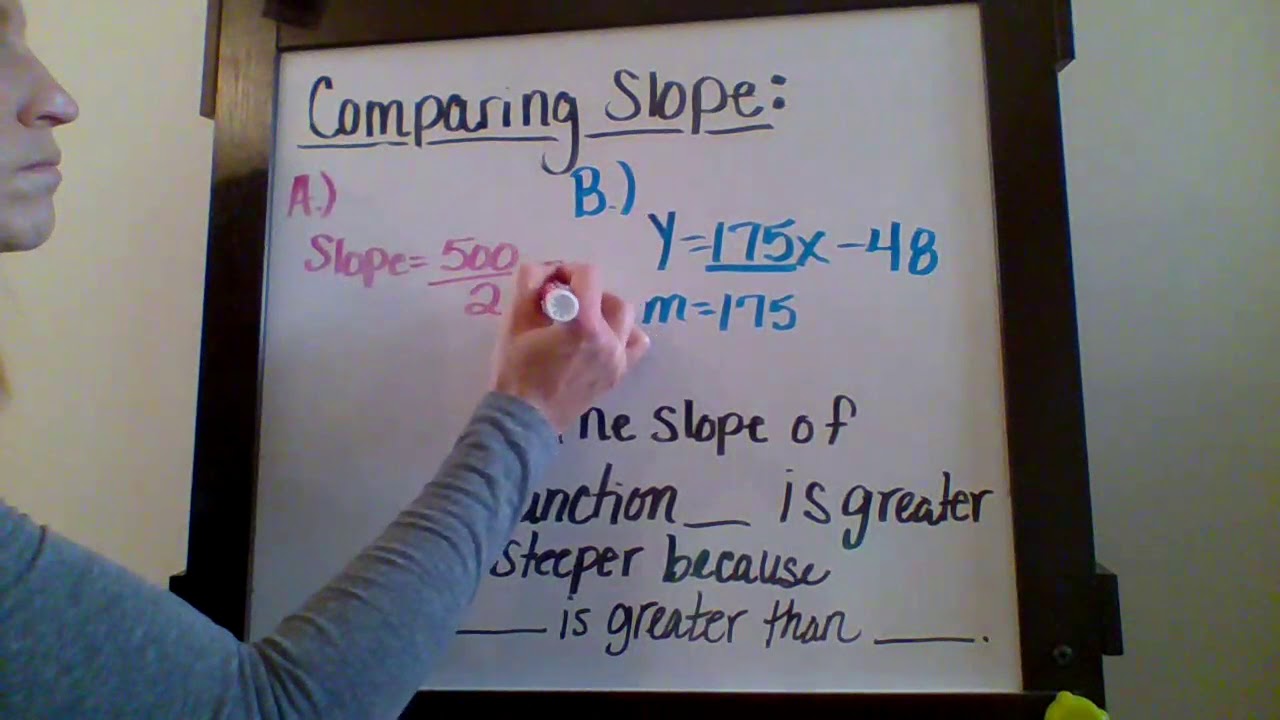 Comparing Slope:
A.)
Slope = 500/2 =
B.)
y=175x-48
m=175
slope of
__ is greater
steeper because
___ is greater than ___.